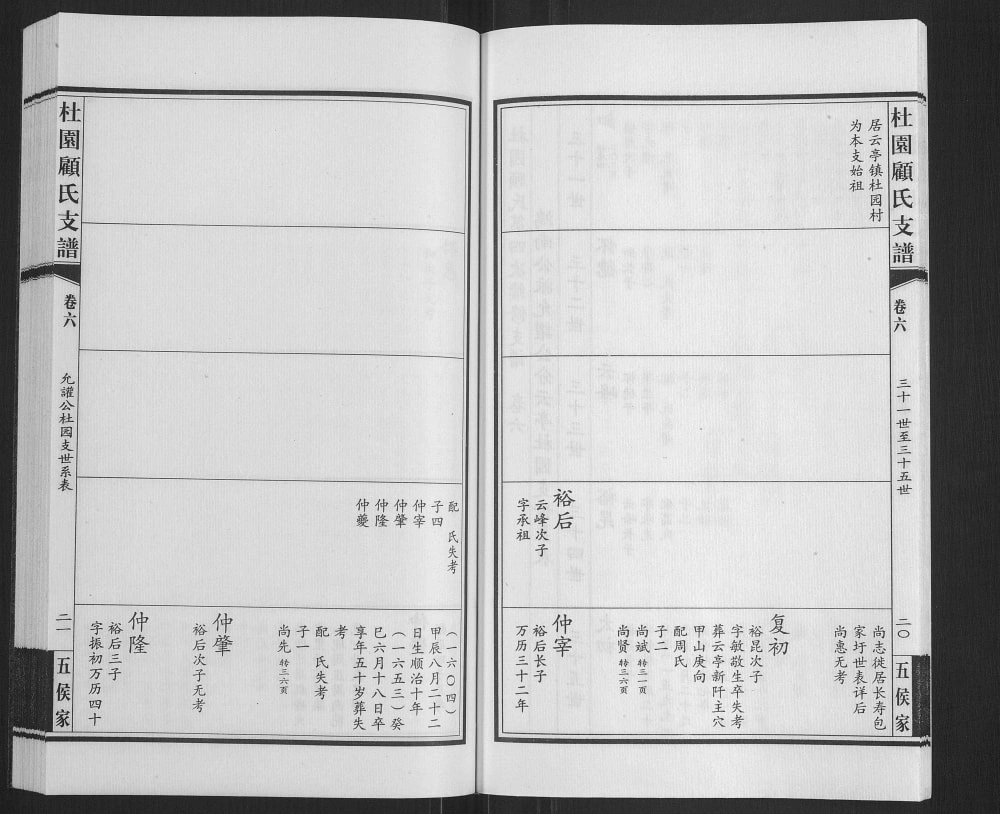 杜園顧氏支譜
卷六
三十一世至三十五世
二〇
五侯家
居云亭镇杜园村
为本支始祖
裕后
云峰次子
字承祖
尚志徙居长寿包
家圩世表详后
尚惠无考
复初
裕昆次子
字敏敖生卒失考
葬云亭新阡主穴
甲山庚向
配周氏
子二
尚斌 转三一页
尚贤 转三六页
仲宰
裕后长子
万历三十二年
配 氏失考
子四
仲宰
仲肇
仲隆
仲夔
（一六〇四）
甲辰八月二十二
日生顺治十年
（一六五三）癸
巳六月十八日卒
享年五十岁葬失
考
配 氏失考
子一
尚先 转三六页
仲肇
裕后次子无考
仲隆
裕后三子
字振初万历四十
杜園顧氏支譜
卷六
允讙公杜园支世系表
二一
五侯家